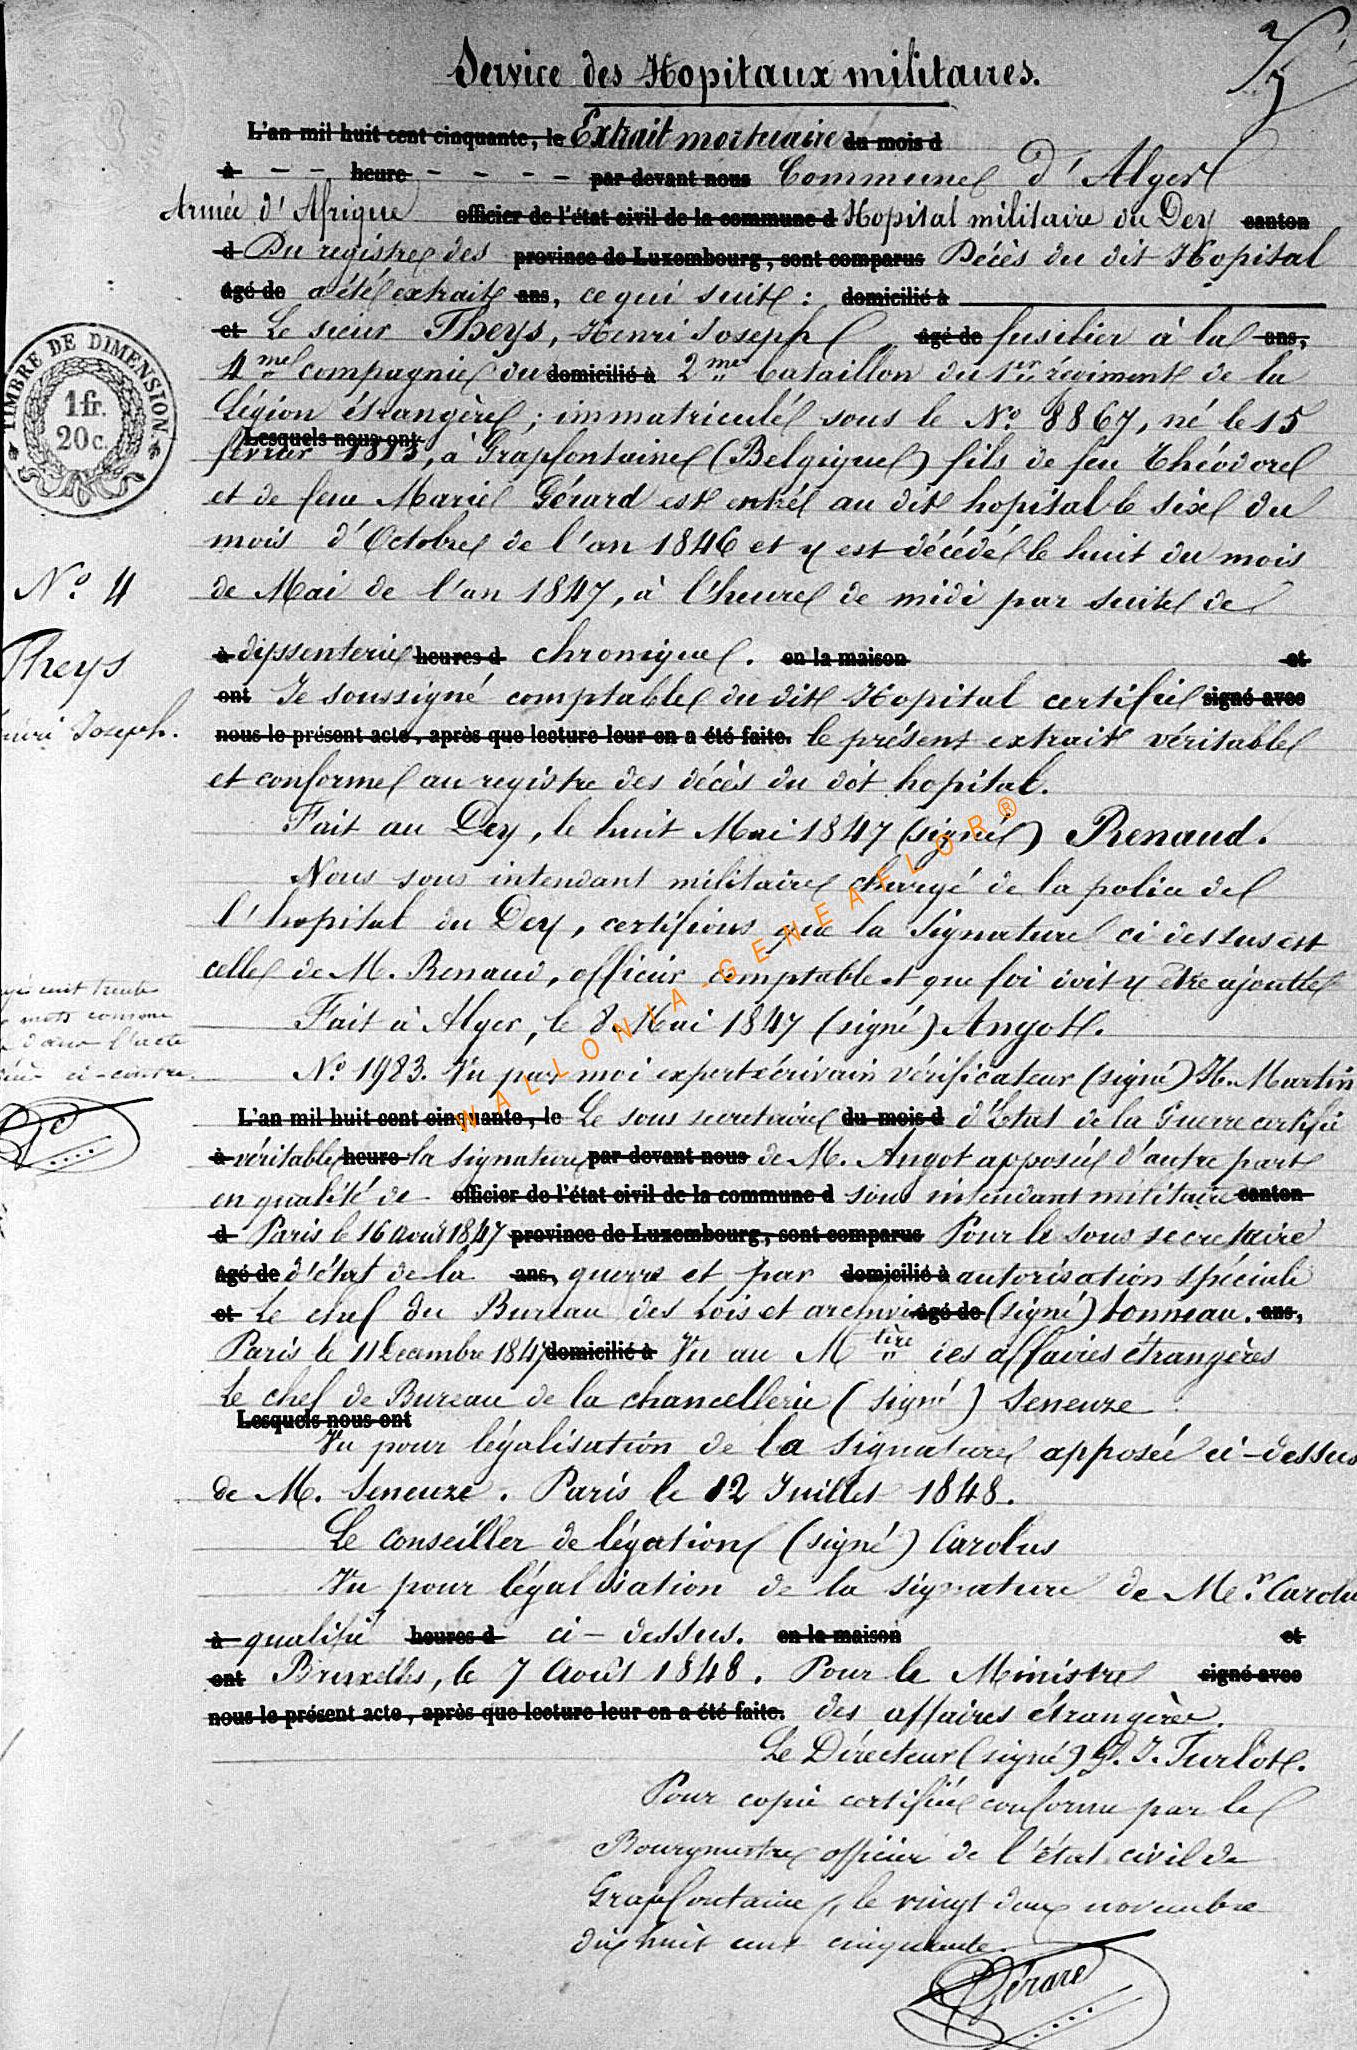 Service des Hopitaux militaires.
L'an mil huit cent cinquante, le Extrait mortuaire du mois d
à - - heure - - - - par devant nous Commune d'Alger
Armée d'Afrique officier de l'état civil de la commune d Hopital militaire du Dey canton
d Du registre des province de Luxembourg, sont comparus Décès du dit Hopital
âgé de a été extrait ans, ce qui suit : domicilié à
et Le sieur Theys, Henri Joseph âgé de fusilier à la ans,
4me compagnie du domicilié à 2me bataillon du 1er régiment de la
Légion étrangère ; immatriculé sous le No 8867, né le 15
Lesquels nous ont
février 1813, à Grapfontaine (Belgique) fils de feu Théodore
et de feue Marie Gérard est entré au dit hopital le sixe du
mois d'Octobre de l'an 1846 et y est décédé le huit du mois
de Mai de l'an 1847, à l'heure de midi par suite de
à dyssenterie heures d chronique. en la maison et
ont Je soussigné comptable du dit Hopital certifie signé avec
nous le présent acte, après que lecture leur en a été faite. le présent extrait véritable
et conforme au registre des décès du dit hopital.
Fait au Dey, le huit Mai 1847 (signé) Renaud.
Nous sous intendant militaire chargé de la police de
l'hopital du Dey, certifions que la signature ci dessus est
celle de M. Renaud, officier comptable et que foi doit y être ajoutée
Fait à Alger, le 8 Mai 1847 (signé) Angot.
No 1983. Vu par moi expert écrivain vérificateur (signé) H. Martin
L'an mil huit cent cinquante, le Le sous secretaire du mois d d'Etat de la Guerre certifie
à véritable heure la signature par devant nous de M. Angot apposée d'autre part
en qualité de officier de l'état civil de la commune d sous intendant militaire canton
d Paris le 16 Août 1847 province de Luxembourg, sont comparus Pour le sous secretaire
âgé de d'état de la ans, guerre et par domicilié à autorisation spéciale
et Le chef du Bureau des Lois et archives âgé de (signé) Tonneau. ans,
Paris le 11 Decembre 1847 domicilié à Vu au Mtère des affaires étrangères
Le chef de Bureau de la chancellerie (signé) Seneuze
Lesquels nous ont
Vu pour légalisation de la signature apposée ci-dessus
de M. Seneuze. Paris le 12 Juillet 1848.
Le conseiller de légation (signé) Carolus
Vu pour légalisation de la signature de Mr. Carolu
à qualifié heures d ci-dessus. en la maison et
ont Bruxelles, le 7 Août 1848. Pour le Ministre signé avec
nous le présent acte, après que lecture leur en a été faite. des affaires étrangères.
Le Directeur (signé) J. Turlot.
Pour copie certifiée conforme par le
Bourgmestre officier de l'état civil de
Grapfontaine, le vingt deux novembre
dix huit cent cinquante.
Gérard
TIMBRE DE DIMENSION
1 fr.
20 c.
No 4
Theys
Henri Joseph.
cent trente
mots comme
dans l'acte
ci-contre.
WALLONIA-GENEAFLOR®